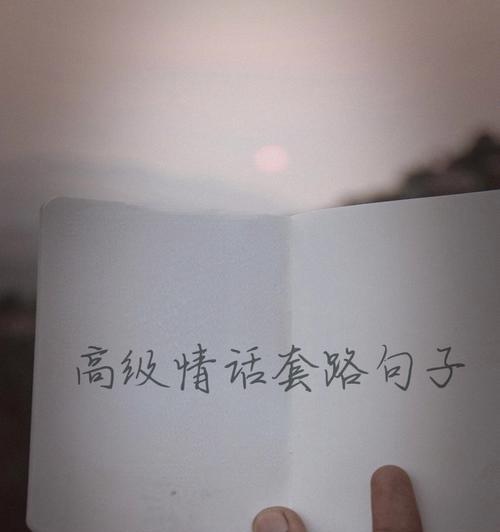 高级情话套路句子